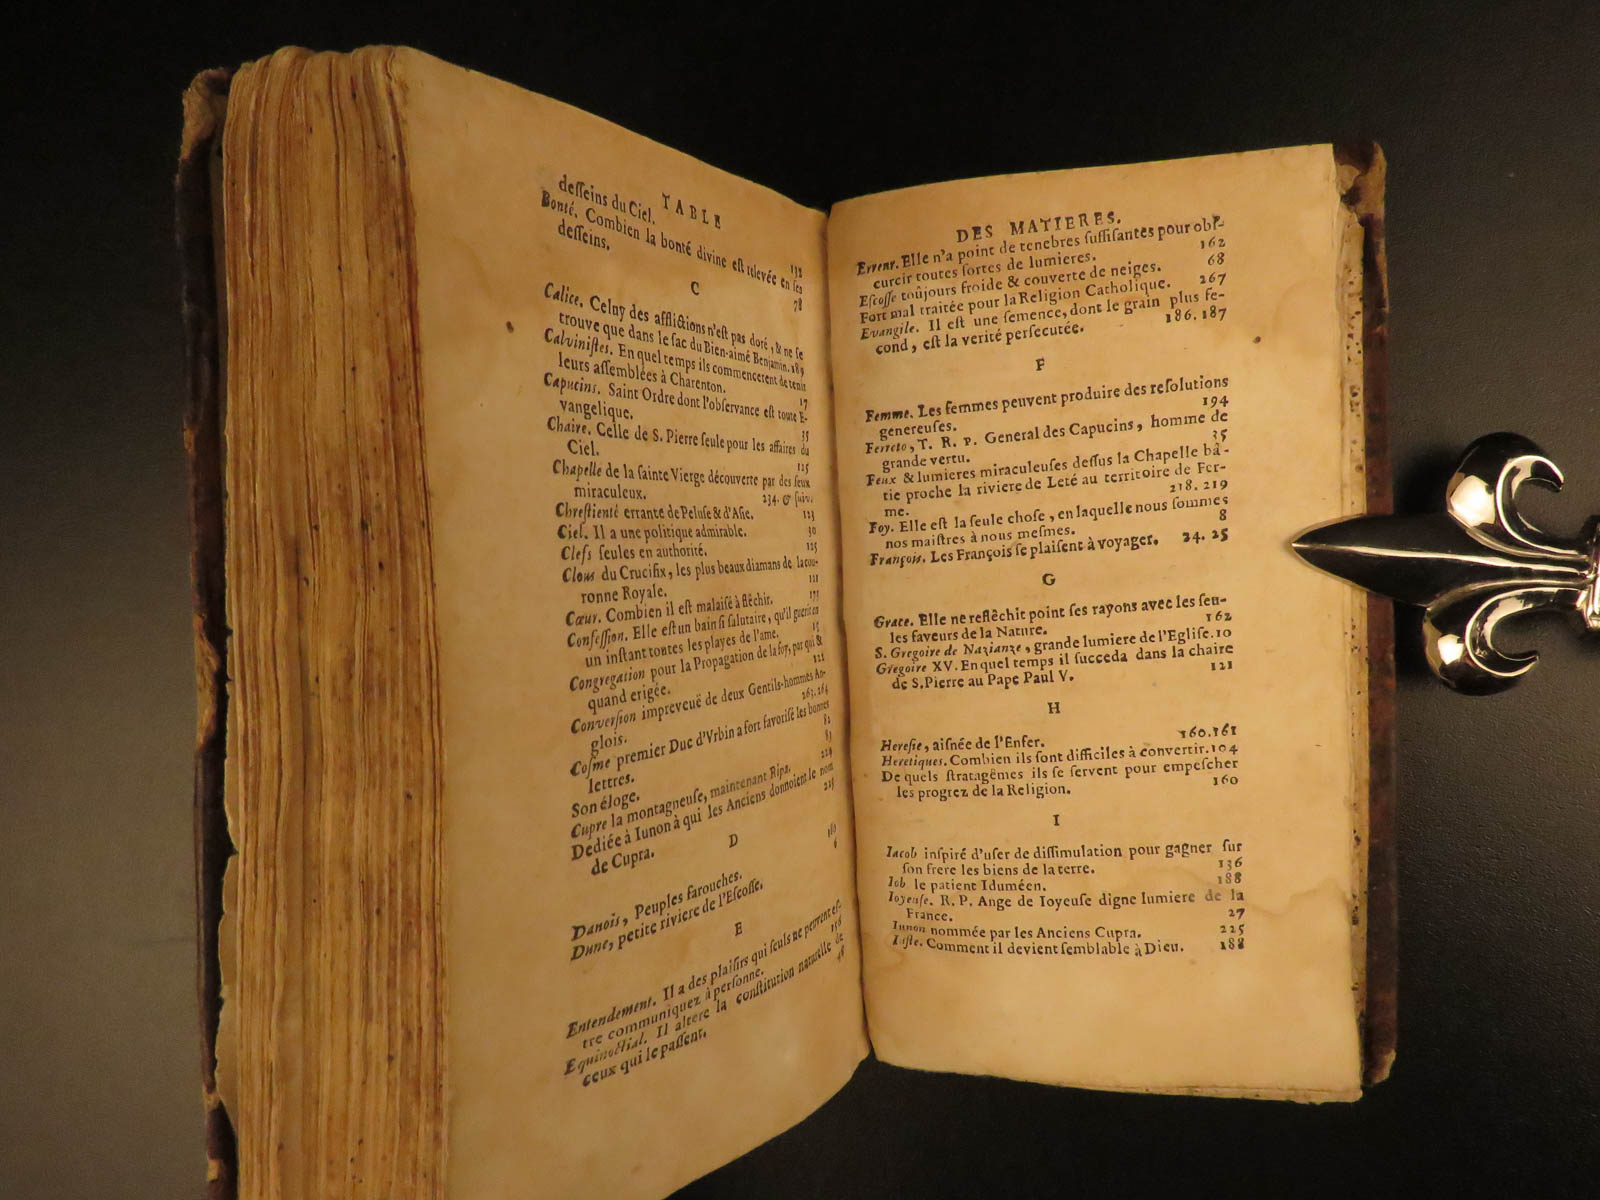 TABLE
desseins du Ciel. 132
Bonté. Combien la bonté divine est relevée en ses
desseins. 78
C
Calice. Celuy des afflictions n'est pas doré, & ne se
trouve que dans le sac du Bien-aimé Benjamin. 189
Calvinistes. En quel temps ils commencerent de tenir
leurs assemblées à Charenton. 17
Capucins. Saint Ordre dont l'observance est toute E-
vangelique. 35
Chaire. Celle de S. Pierre seule pour les affaires du
Ciel. 125
Chapelle de la sainte Vierge découverte par des feux
miraculeux. 234. & suiv.
Chrestienté errante de Peluse & d'Asie. 123
Ciel. Il a une politique admirable. 30
Clefs seules en authorité. 125
Clous du Crucifix, les plus beaux diamans de la cou-
ronne Royale. 121
Cœur. Combien il est malaisé à fléchir. 175
Confession. Elle est un bain si salutaire, qu'il guerit en
un instant toutes les playes de l'ame. 15
Congregation pour la Propagation de la foy, par qui &
quand erigée. 122
Conversion impreveuë de deux Gentils-hommes An-
glois. 263. 264
Cosme premier Duc d'Vrbin a fort favorisé les bonnes
lettres. 82
Son éloge. 83
Cupre la montagneuse, maintenant Ripa. 224
Dediée à Iunon à qui les Anciens donnoient le nom
de Cupra. 225
D
Danois, Peuples farouches. 160
Dune, petite riviere de l'Escosse. 6
E
Entendement. Il a des plaisirs qui seuls ne peuvent es-
tre communiquez à personne. 156
Equinoctial. Il altere la constitution naturelle de
ceux qui le passent. 48
DES MATIERES.
Erreur. Elle n'a point de tenebres suffisantes pour obs-
curcir toutes sortes de lumieres. 162
Escosse toûjours froide & couverte de neiges. 68
Fort mal traitée pour la Religion Catholique. 267
Evangile. Il est une semence, dont le grain plus fe-
cond, est la verité persecutée. 186. 187
F
Femme. Les femmes peuvent produire des resolutions
genereuses. 194
Ferreto, T. R. P. General des Capucins, homme de
grande vertu. 35
Feux & lumieres miraculeuses dessus la Chapelle bâ-
tie proche la riviere de Leté au territoire de Fer-
me. 218. 219
Foy. Elle est la seule chose, en laquelle nous sommes
nos maistres à nous mesmes. 8
François. Les François se plaisent à voyager. 24. 25
G
Grace. Elle ne reflêchit point ses rayons avec les seu-
les faveurs de la Nature. 162
S. Gregoire de Nazianze, grande lumiere de l'Eglise. 10
Gregoire XV. En quel temps il succeda dans la chaire
de S. Pierre au Pape Paul V. 121
H
Heresie, aisnée de l'Enfer. 160. 161
Heretiques. Combien ils sont difficiles à convertir. 104
De quels stratagêmes ils se servent pour empescher
les progrez de la Religion. 160
I
Iacob inspiré d'user de dissimulation pour gagner sur
son frere les biens de la terre. 136
Iob le patient Iduméen. 188
Ioyeuse. R. P. Ange de Ioyeuse digne lumiere de la
France. 27
Iunon nommée par les Anciens Cupra. 225
Iuste. Comment il devient semblable à Dieu. 188